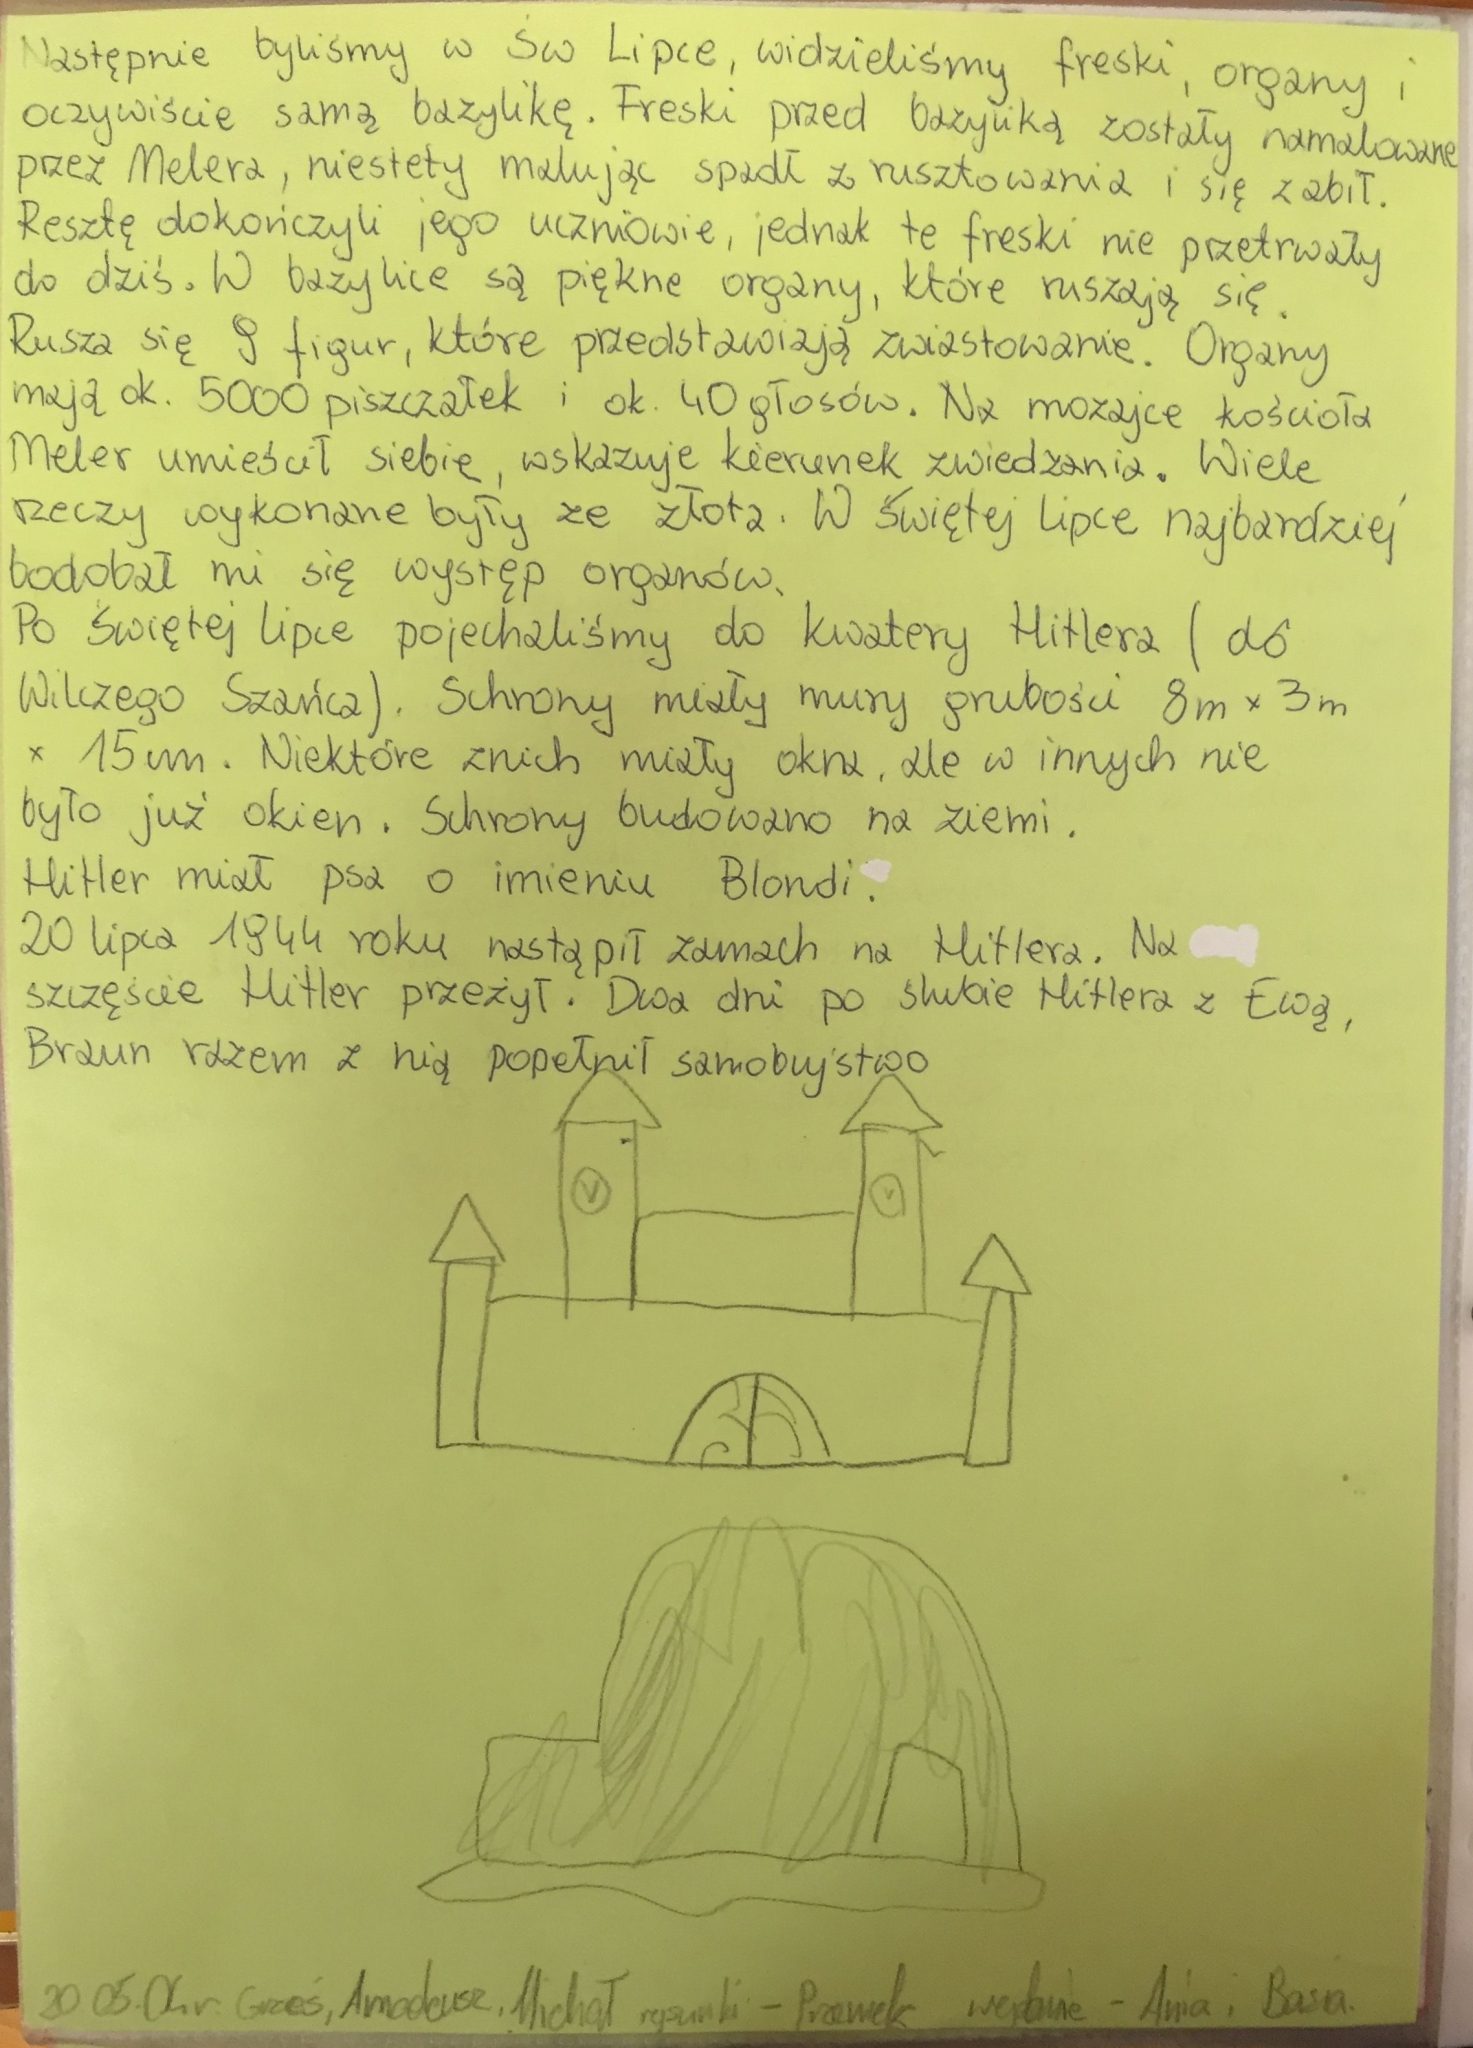 Następnie byliśmy w Św Lipce, widzieliśmy freski, organy i
oczywiście samą bazylikę. Freski przed bazyliką zostały namalowane
przez Melera, niestety malując spadł z rusztowania i się zabił.
Resztę dokończyli jego uczniowie, jednak te freski nie przetrwały
do dziś. W bazylice są piękne organy, które ruszają się.
Rusza się 9 figur, które przedstawiają zwiastowanie. Organy
mają ok. 5000 piszczałek i ok. 40 głosów. Na mozajce kościoła
Meler umieścił siebie, wskazuje kierunek zwiedzania. Wiele
rzeczy wykonane były ze złota. W Świętej Lipce najbardziej
bodobał mi się występ organów.
Po Świętej Lipce pojechaliśmy do kwatery Hitlera (do
Wilczego Szańca). Schrony miały mury grubości 8m x 3m
x 15cm. Niektóre znich miały okna, ale w innych nie
było już okien. Schrony budowano na ziemi.
Hitler miał psa o imieniu Blondi.
20 lipca 1944 roku nastąpił zamach na Hitlera. Na
szczęście Hitler przeżył. Dwa dni po ślubie Hitlera z Ewą,
Braun razem z nią popełnił samobujstwo
20 05. r. Grześ, Amadeusz, Michał rysunki - Przemek - Ania i Basia.